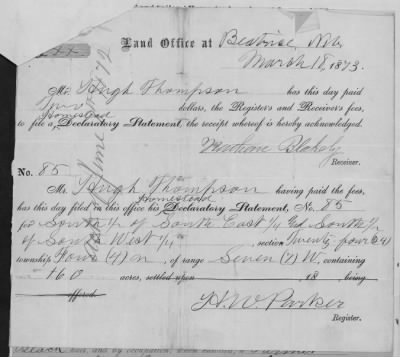 Land Office at Beatrice, Neb
March 18, 1873.
Mr. Hugh Thompson has this day paid
Two dollars, the Register's and Receiver's fees,
Homestead
to file a Declaratory Statement, the receipt whereof is hereby acknowledged.
Nathan Blakely
Receiver.
No. 85
Mr. Hugh Thompson having paid the fees,
Homestead
has this day filed in this office his Declaratory Statement, No. 85
for South 1/2 of South East 1/4 and South 1/2
of South West 1/4 section Twenty four (24)
township Four (4) N, of range Seven (7) W, containing
160 acres, settled upon 18 , being
offered.
H. W. Parker
Register.
and by occupation